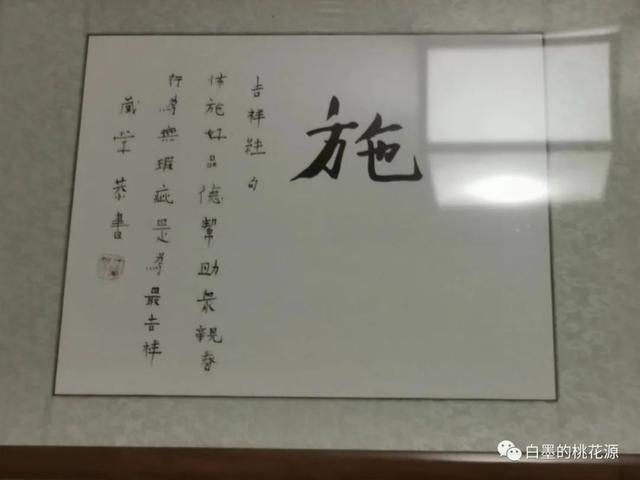 施
吉祥経句
佈施好品德幫助眾親眷
行為無瑕疵是為最吉祥
學恭書
白墨的桃花源